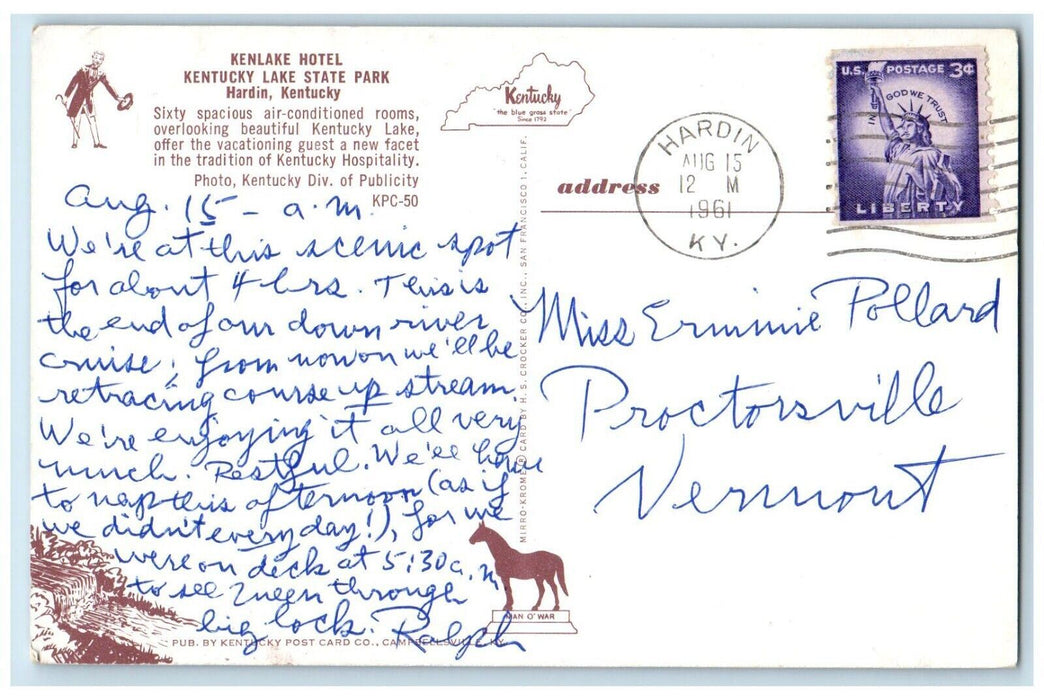 KENLAKE HOTEL
KENTUCKY LAKE STATE PARK
Hardin, Kentucky
Sixty spacious air-conditioned rooms,
overlooking beautiful Kentucky Lake,
offer the vacationing guest a new facet
in the tradition of Kentucky Hospitality.
Photo, Kentucky Div. of Publicity
KPC-50
Kentucky
"the blue grass state"
Since 1792
HARDIN
AUG 15
12 M
1961
KY.
U.S. POSTAGE 3¢
IN GOD WE TRUST
LIBERTY
address
Aug. 15 - a.m.
We're at this scenic spot
for about 4 hrs. This is
the end of our down river
cruise; from now on we'll be
retracing course up stream.
We're enjoying it all very
much. Restful. We'll have
to nap this afternoon (as if
we didn't every day!), for we
were on deck at 5:30 a.m
to see Queen through
big lock. Ralph
Miss Erminie Pollard
Proctorsville
Vermont
MIRRO-KROME ® CARD BY H. S. CROCKER CO., INC., SAN FRANCISCO 1, CALIF.
MAN O' WAR
PUB. BY KENTUCKY POST CARD CO., CAMPBELLSVILLE, KY.